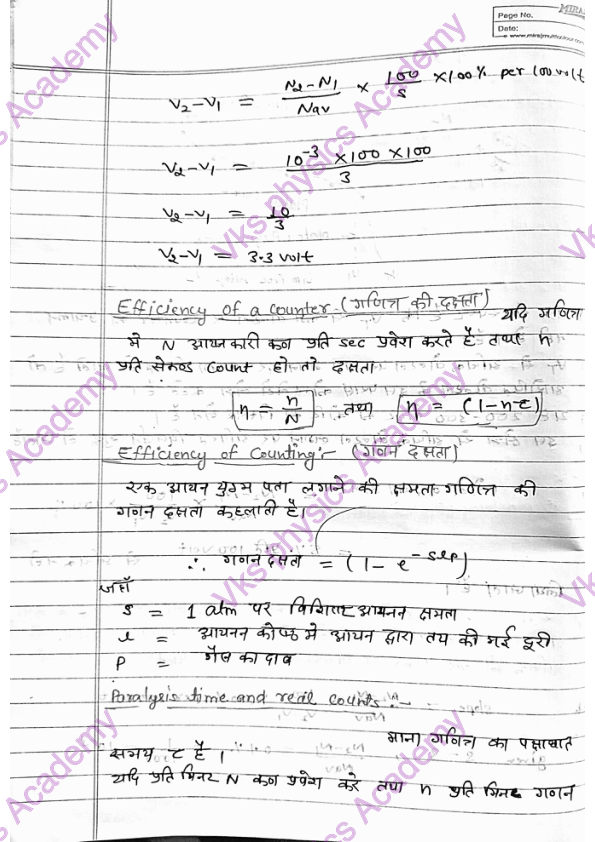 Page No.
Date:
V₂-V₁ = (N₂-N₁)/Nav × 100/S × 100% per 100 volt
V₂-V₁ = (10⁻³ × 100 × 100)/3
V₂-V₁ = 10/3
V₂-V₁ = 3.3 volt
Efficiency of a counter (गणित्र की दक्षता) यदि गणित्र
मे N आयनकारी कण प्रति sec प्रवेश करते है तथा n
प्रति सेकण्ड count हो तो दक्षता
η = n/N तथा η = (1-nτ)
Efficiency of Counting:- (गणन दक्षता)
एक आयन युग्म पता लगाने की क्षमता गणित्र की
गणन दक्षता कहलाती है।
∴ गणन दक्षता = (1 - e^-slp)
जहाँ
s = 1 atm पर विशिष्ट आयनन क्षमता
l = आयनन कोष्ठ मे आयन द्वारा तय की गई दूरी
P = गैस का दाब
Paralysis time and real counts:-
माना गणित्र का पक्षाघात
समय τ है ।
यदि प्रति मिनट N कण प्रवेश करे तथा n प्रति मिनट गणन
Vks physics Academy